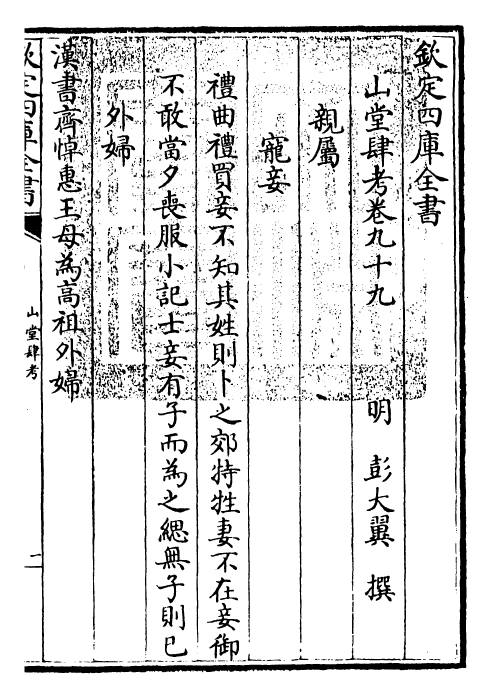 欽定四庫全書
山堂肆考卷九十九 明 彭大翼 撰
親屬
寵妾
禮曲禮買妾不知其姓則卜之郊特牲妻不在妾御
不敢當夕喪服小記士妾有子而為之緦無子則已
外婦
漢書齊悼惠王母為高祖外婦
欽定四庫全書
山堂肆考
二